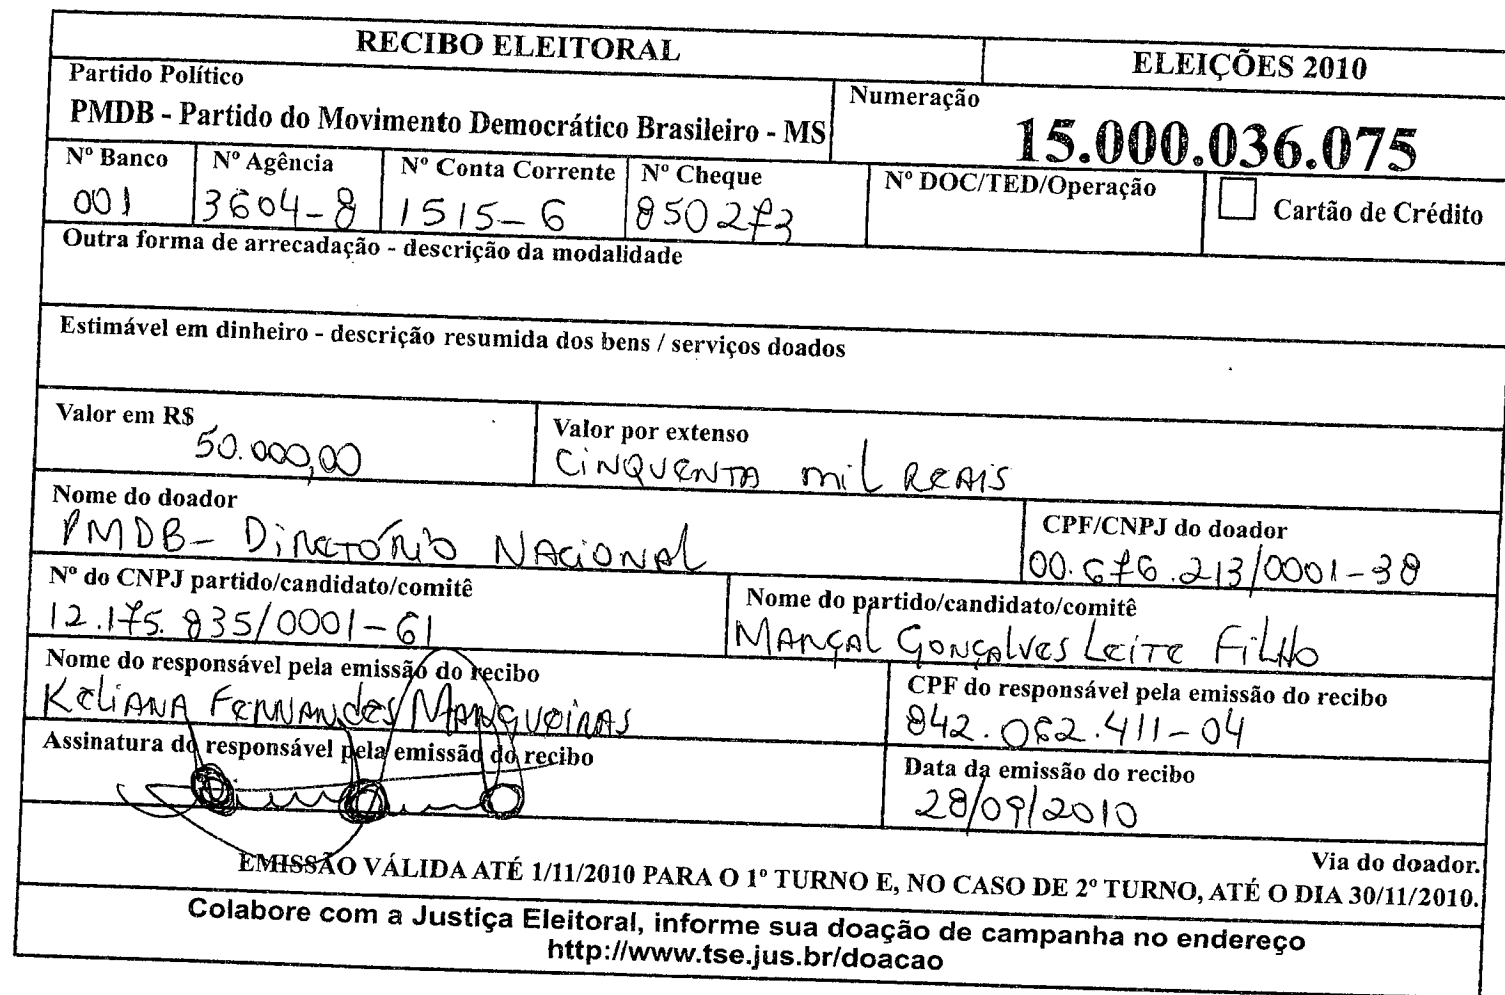 RECIBO ELEITORAL
ELEIÇÕES 2010
Partido Político
PMDB - Partido do Movimento Democrático Brasileiro - MS
Numeração
15.000.036.075
Nº Banco
001
Nº Agência
3604-8
Nº Conta Corrente
1515-6
Nº Cheque
850273
Nº DOC/TED/Operação
Cartão de Crédito
Outra forma de arrecadação - descrição da modalidade
Estimável em dinheiro - descrição resumida dos bens / serviços doados
Valor em R$
50.000,00
Valor por extenso
CINQUENTA mil REAIS
Nome do doador
PMDB - DIRETÓRIO NACIONAL
CPF/CNPJ do doador
00.676.213/0001-38
Nº do CNPJ partido/candidato/comitê
12.175.835/0001-61
Nome do partido/candidato/comitê
MARÇAL GONÇALVES LEITE FILHO
Nome do responsável pela emissão do recibo
KELIANA FERNANDES MANGUEIRAS
CPF do responsável pela emissão do recibo
842.062.411-04
Assinatura do responsável pela emissão do recibo
Data da emissão do recibo
28/09/2010
Via do doador.
EMISSÃO VÁLIDA ATÉ 1/11/2010 PARA O 1º TURNO E, NO CASO DE 2º TURNO, ATÉ O DIA 30/11/2010.
Colabore com a Justiça Eleitoral, informe sua doação de campanha no endereço
http://www.tse.jus.br/doacao